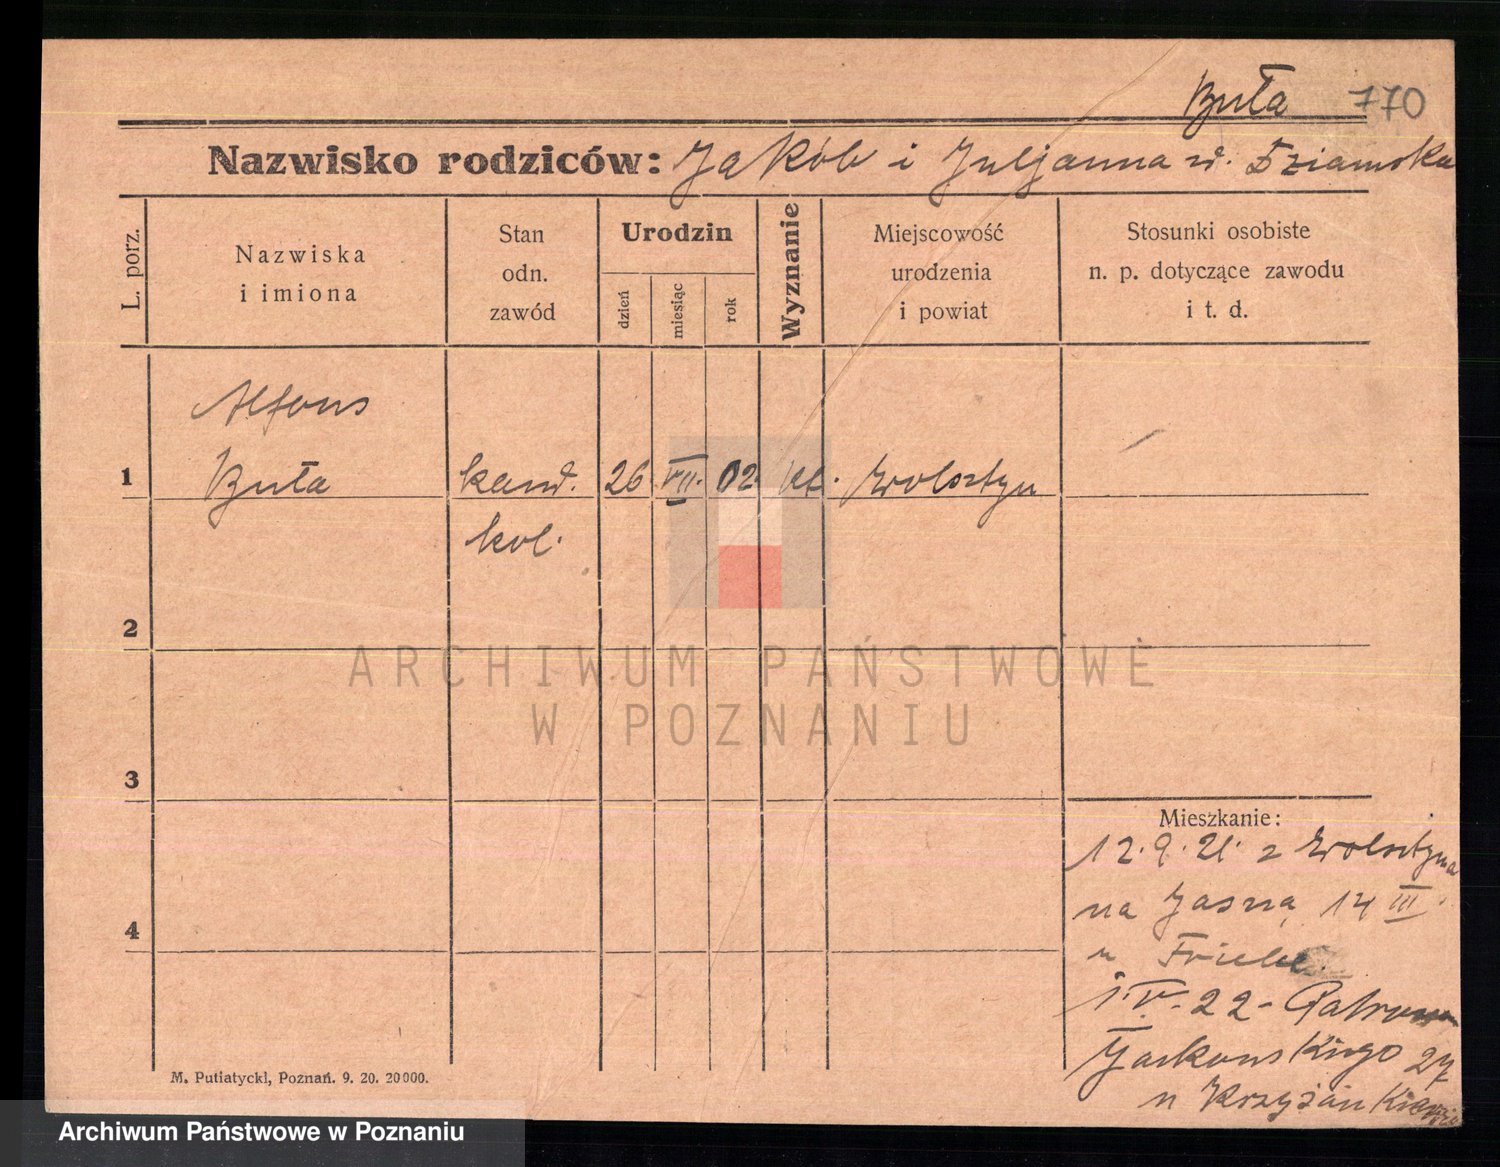 Buła 770
Nazwisko rodziców: Jakób i Juljanna z d. Dziamska
L. porz.
Nazwiska
i imiona
Stan
odn.
zawód
Urodzin
dzień
miesiąc
rok
Wyznanie
Miejscowość
urodzenia
i powiat
Stosunki osobiste
n. p. dotyczące zawodu
i t. d.
Alfons
1 Buła kand. 26 VII. 02 kt. Wolsztyn
kol.
2
3
4
Mieszkanie:
12.9.21. z Wolsztyna
na Jasną 14 III.
u
1.V.22 -
27
u
M. Putiatycki, Poznań. 9. 20. 20000.
ARCHIWUM PAŃSTWOWE
W POZNANIU
Archiwum Państwowe w Poznaniu